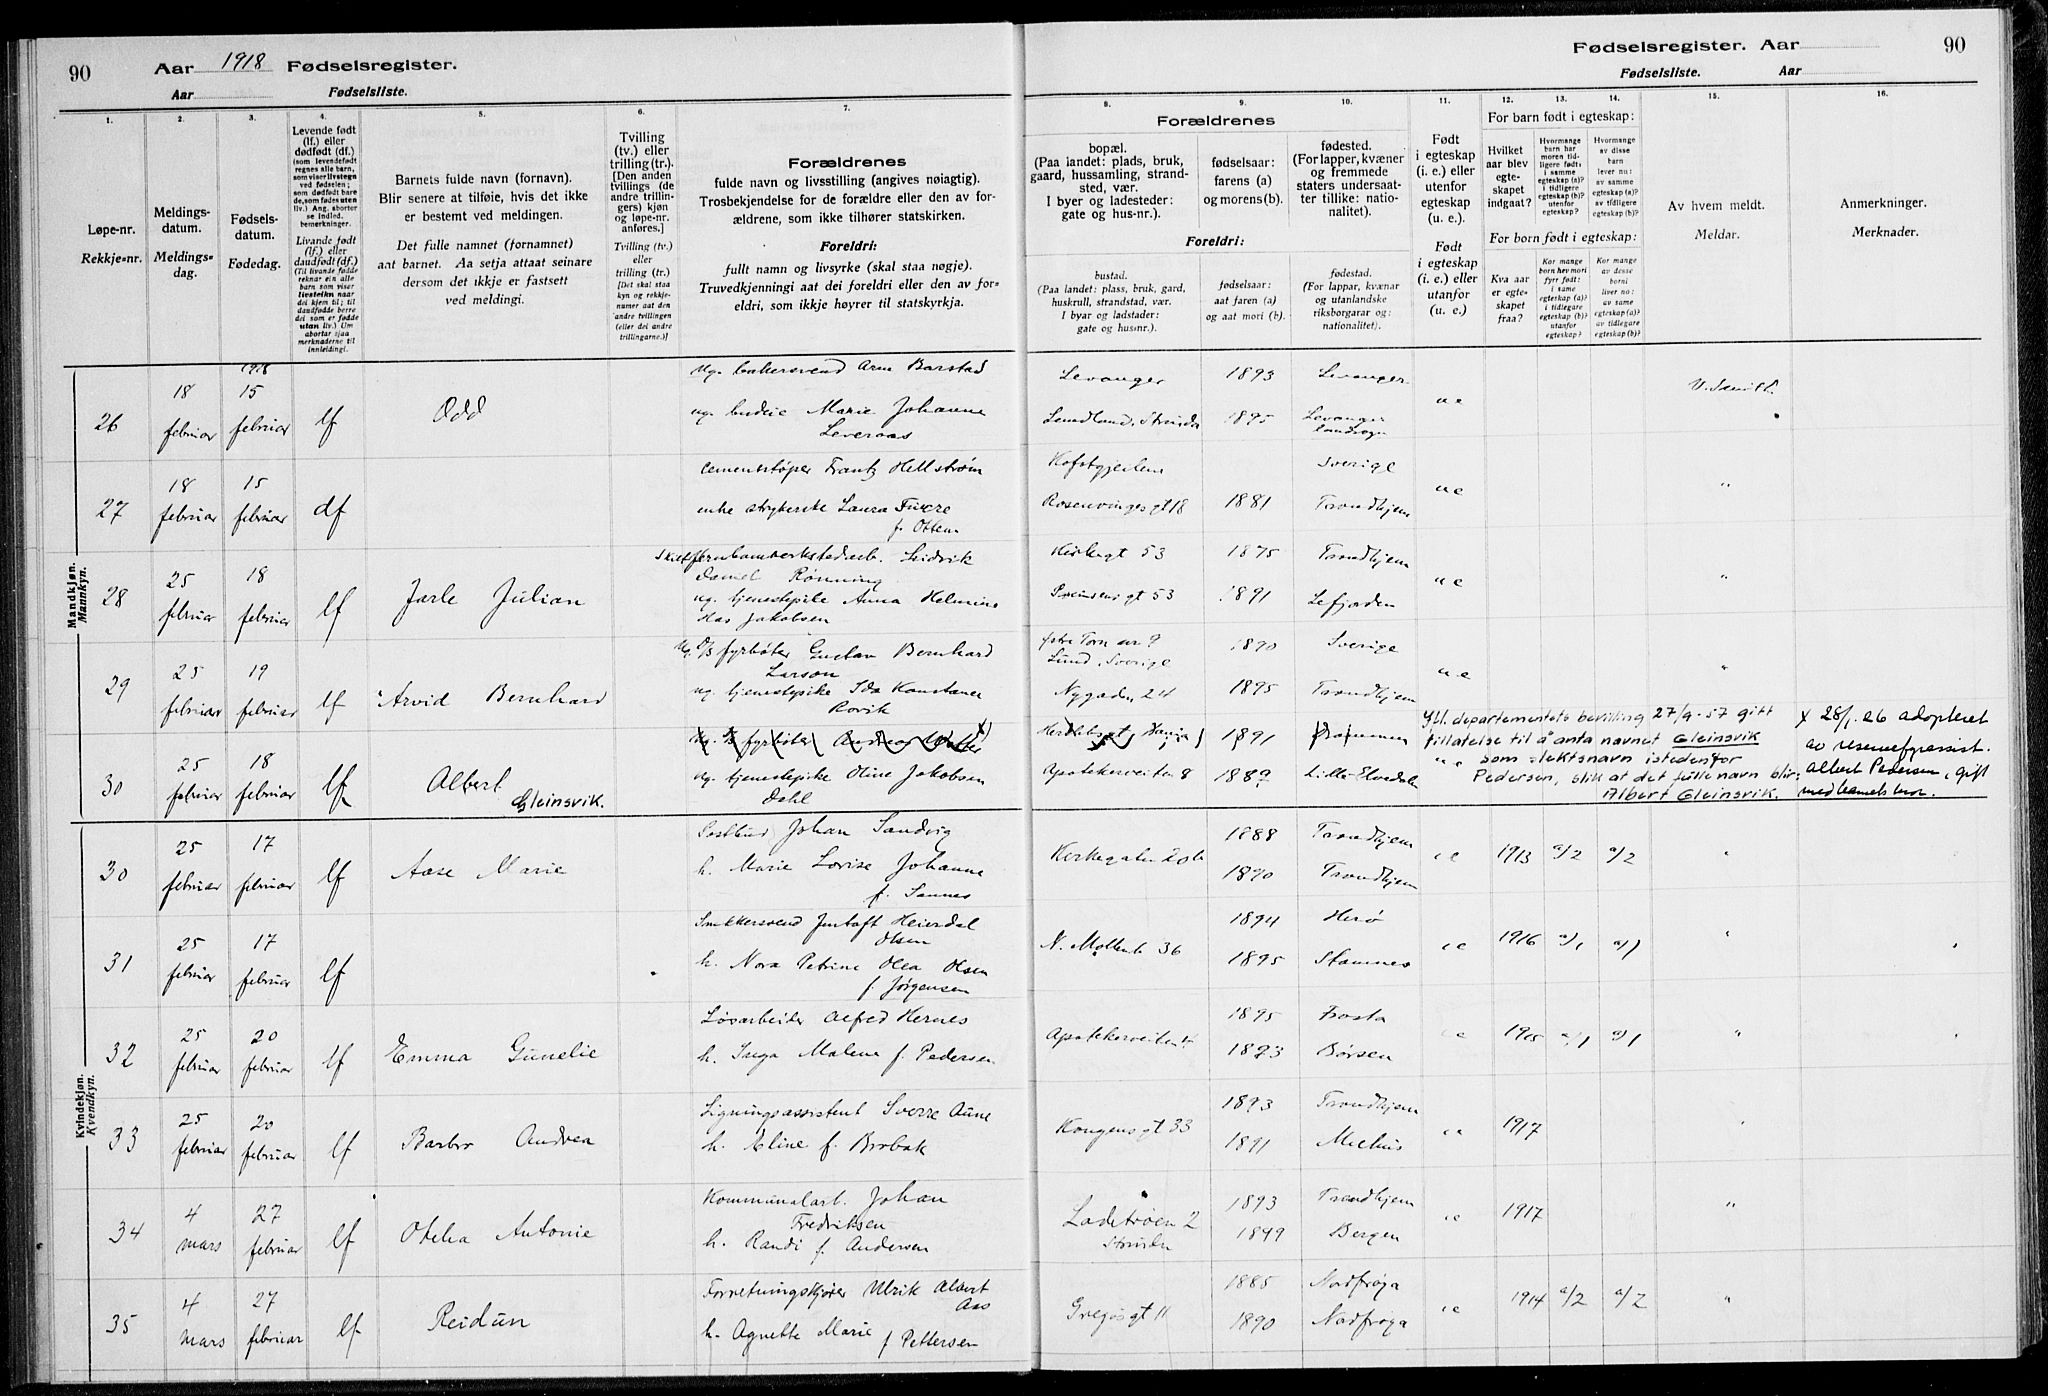 90
Aar 1918 Fødselsregister.
Aar Fødselsliste.
Fødselsregister. Aar
90
Fødselsliste. Aar
1.
Løpe-nr.
Rekkje-nr.
2.
Meldings-
datum.
Meldings-
dag.
3.
Fødsels-
datum.
Fødedag.
4.
Levende født
(lf.) eller
dødfødt (df.)
(som levendefødt
regnes alle barn,
som viser livstegn
ved fødselen;
som dødfødt bare
de, som fødes uten
liv.) Ang. aborter
se indled.
bemerkninger.
Livande født
(lf.) eller
daudfødt (df.)
(Til livande fødde
reknar ein alle
barn som viser
livsteikn naar
dei kjem til; til
daudfødde berre
dei som er fødde
utan liv.) Um
abortar sjaa
merknaderne til
innleidingi.
5.
Barnets fulde navn (fornavn).
Blir senere at tilføie, hvis det ikke
er bestemt ved meldingen.
Det fulle namnet (fornamnet)
aat barnet. Aa setja attaat seinare
dersom det ikkje er fastsett
ved meldingi.
6.
Tvilling
(tv.) eller
trilling (tr.).
[Den anden
tvillings (de
andre trillin-
gers) kjøn
og løpe-nr.
anføres.]
Tvilling (tv.)
eller
trilling (tr.)
[Det skal staa
kyn og rekkje-
numer aat den
andre tvillingen
(eller dei andre
trillingarne.)]
7.
Forældrenes
fulde navn og livsstilling (angives nøiagtig).
Trosbekjendelse for de forældre eller den av for-
ældrene, som ikke tilhører statskirken.
Foreldri:
fullt namn og livsyrke (skal staa nøgje).
Truvedkjenningi aat dei foreldri eller den av for-
eldri, som ikkje høyrer til statskyrkja.
8. 9. 10.
Forældrenes
bopæl.
(Paa landet: plads, bruk,
gaard, hussamling, strand-
sted, vær.
I byer og ladesteder:
gate og hus-nr.).
fødselsaar:
farens (a)
og morens (b).
fødested.
(For lapper, kvæner
og fremmede
staters undersaat-
ter tillike: natio-
nalitet).
Foreldri:
bustad.
(Paa landet: plass, bruk, gard,
huskrull, strandstad, vær.
I byar og ladstader:
gate og husnr.).
fødselsaar:
aat faren (a)
og aat mori (b).
fødestad.
(For lappar, kvænar
og utanlandske
riksborgarar og:
nationalitet).
11.
Født
i egteskap
(i. e.) eller
utenfor
egteskap
(u. e.).
Født
i egteskap
(i. e.) eller
utanfor
(u. e.)
12. 13. 14.
For barn født i egteskap:
Hvilket
aar blev
egte-
skapet
indgaat?
Hvormange
barn har
moren tid-
ligere født:
i samme
egteskap (a)?
i tidligere
egteskap (b)?
utenfor
egteskap?
Hvormange
av disse
barn
lever nu:
av samme
egteskap (a)?
av tidligere
egteskap (b)?
For born født i egteskap:
Kva aar
er egte-
skapet
fraa?
Kor mange
born hev mori
fyrr født:
i same
egteskap (a)?
i tidlegare
egteskap (b)?
utanfor
egteskap?
Kor mange
av desse
borni
liver no:
av same
egteskap (a)?
av tidlegare
egteskap (b)?
15.
Av hvem meldt.
Meldar.
16.
Anmerkninger.
Merknader.
Mandkjøn.
Mannkyn.
1918
26 18 februar 15 februar lf Odd
ug. bakersvend Arne Barstad Levanger 1893 Levanger
ug. budeie Marie Johanne 1895 Levanger
landsogn
u e
27 18 februar 15 februar df
cementstøper Frantz Hellstrøm Sverige
enke strykerske Laura Rosenvinges gt 18 1881 Trondhjem
f. Ottem
u e "
28 25 februar 18 februar lf Jarle Julian
53 1875 Trondhjem
Daniel Rønning
ug. tjenestepike Anna Helmine Prinsens gt 53 1891
Jakobsen
u e "
29 25 februar 19 februar lf Arvid Bernhard
ug. fyrbøter Gustav Bernhard 1890 Sverige
Larson Lund, Sverige
ug. tjenestepike Ida Konstanse Nygaden 24 1895 Trondhjem
Rovik
u e "
30 25 februar 18 februar lf Albert
Gleinsvik.
fyrbøter Andreas 1891 Drammen
ug. tjenestepike Oline Jakobsen Apotekerveiten 8 1889 Lille-Elvedalen
Dahl
departementets bevilling 27/9-57 gitt
tillatelse til å anta navnet Gleinsvik
som slektsnavn istedenfor
Pedersen, slik at det fulle navn blir:
Albert Gleinsvik.
x 28/1.26 adopteret
av
Albert Pedersen, gift
med barnets mor.
Kvindekjøn.
Kvendkyn.
30 25 februar 17 februar lf Aase Marie
Postbud Johan Sandvig 1888 Trondhjem
h. Marie Lovise Johanne 1890 Trondhjem
f. Sannes
Kirkegaten 20b i e 1913 a/2 a/2 "
31 25 februar 17 februar lf
Heierdal 1894 Herø
Olsen
h. Nora Petrine Olea Olsen 1895 Stamnes
f. Jørgensen
N. Møllenb 36 i e 1916 a/1 a/1 "
32 25 februar 20 februar lf Emma Gunelie
Løsarbeider Alfred Hernes 1895 Frosta
h. Inga Malena f. Pedersen 1893 Børsen
Apotekerveiten i e 1915 a/1 a/1 "
33 25 februar 20 februar lf Barbro Andrea
Ligningsassistent Sverre Aune 1893 Trondhjem
h. Eline f. Brobak 1891 Melhus
Kongens gt 33 i e 1917 "
34 4 mars 27 februar lf Otelia Antonie
Kommunalarb. Johan 1893 Trondhjem
Fredriksen
h. Randi f. Andersen 1899 Bergen
Ladetrøen 2
Strinden
i e 1917 "
35 4 mars 27 februar lf Reidun
Forretningskjører Ulrik Albert 1885 Nordfrøya
Aas
h. Agnette Marie 1890 Nordfrøya
f Pettersen
gt 11 i e 1914 a/2 a/2 "